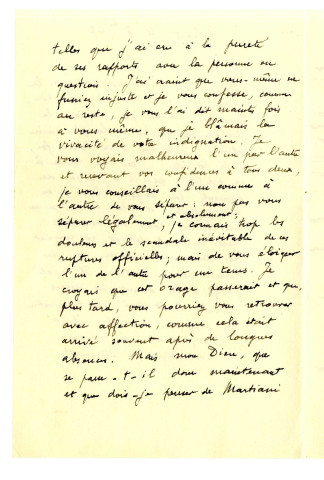 telles que j'ai cru à la pureté
de ses rapports avec la personne en
question. J'ai craint que vous-même ne
fussiez injuste et je vous confesse, comme
au reste, je vous l'ai dit mainte fois
à vous même, que je blâmais la
vivacité de votre indignation. Je
vous voyais malheureux l'un par l'autre
et recevant vos confidences à tous deux,
je vous conseillais à l'une comme à
l'autre de vous séparer; non pas vous
séparer légalement, et absolument;
je connais trop les
douleurs et le scandale inévitable de ces
ruptures officielles; mais de vous éloigner
l'un de l'autre pour un tems. Je
croyais que cet orage passerait et que,
plus tard, vous pourriez vous retrouver
avec affection, comme cela était
arrivé souvent après de longues
absences. Mais mon Dieu, que
se passe-t-il donc maintenant
et que dois-je penser de Martiani